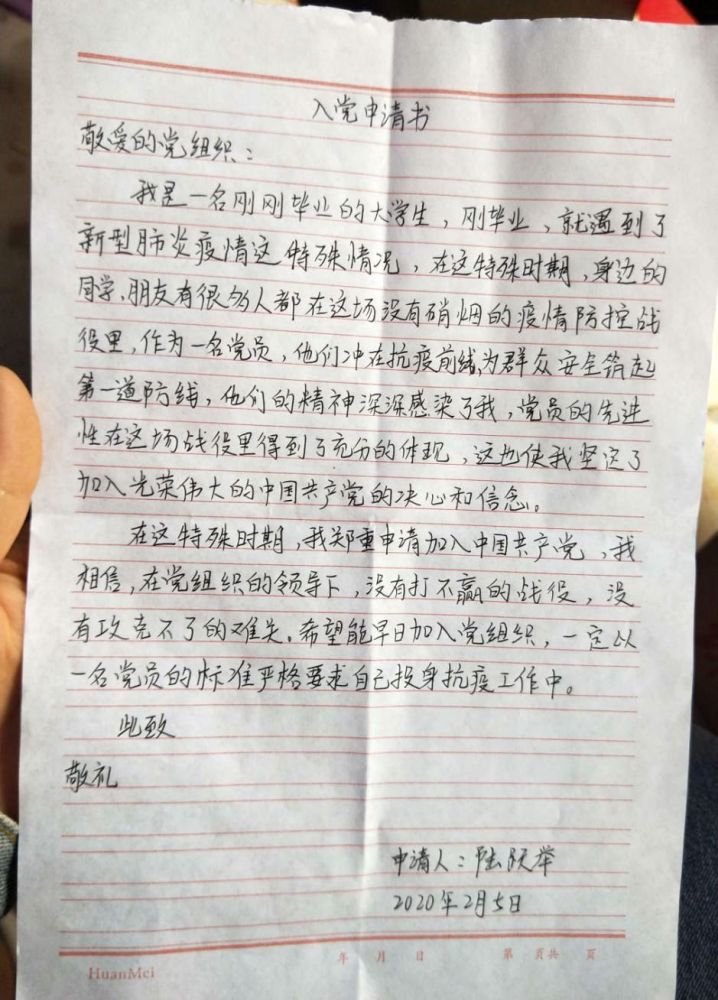 入党申请书
敬爱的党组织：
我是一名刚刚毕业的大学生，刚毕业，就遇到了
新型肺炎疫情这特殊情况，在这特殊时期，身边的
同学、朋友有很多人都在这场没有硝烟的疫情防控战
役里，作为一名党员，他们冲在抗疫前线，为群众安全筑起
第一道防线，他们的精神深深感染了我，党员的先进
性在这场战役里得到了充分的体现，这也使我坚定了
加入光荣伟大的中国共产党的决心和信念。
在这特殊时期，我郑重申请加入中国共产党，我
相信，在党组织的领导下，没有打不赢的战役，没
有攻克不了的难关。希望能早日加入党组织，一定以
一名党员的标准严格要求自己投身抗疫工作中。
此致
敬礼
申请人：陆跃举
2020年2月5日
年 月 日 第 页共 页
HuanMei